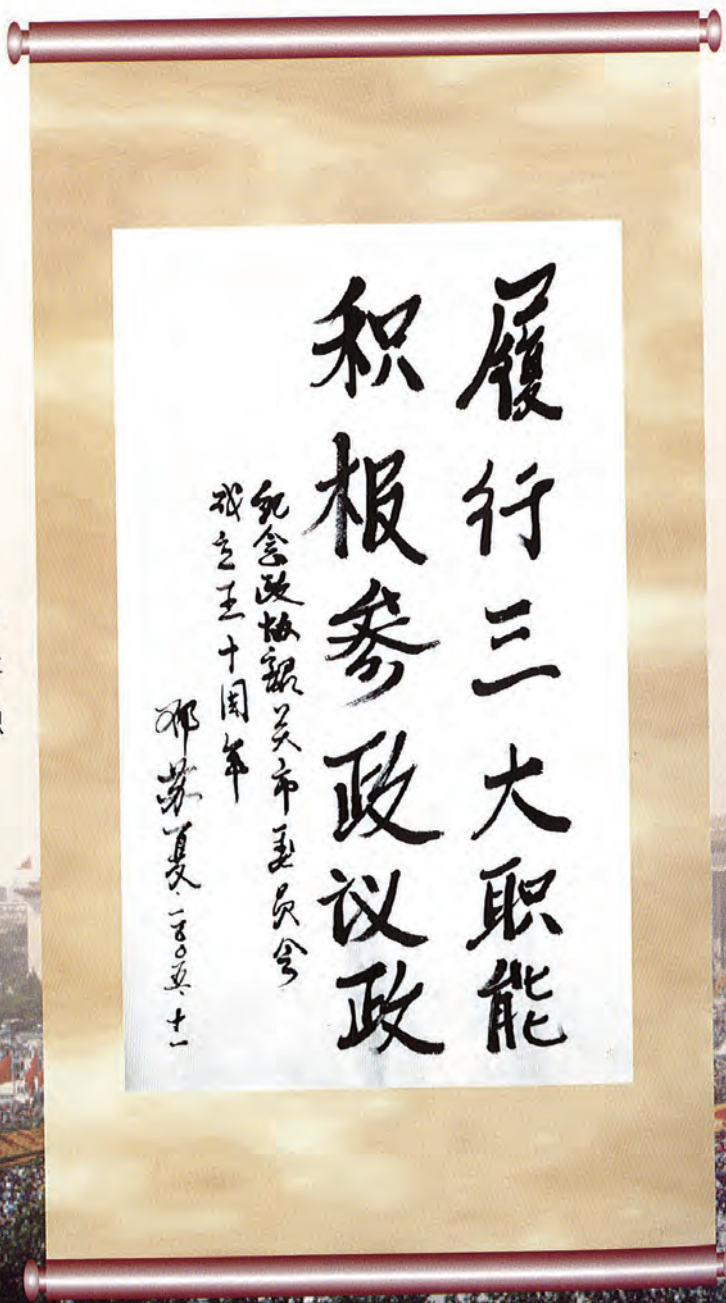 履行三大职能
积极参政议政
纪念政协韶关市委员会
成立五十周年
邓苏夏 二〇〇五、十一